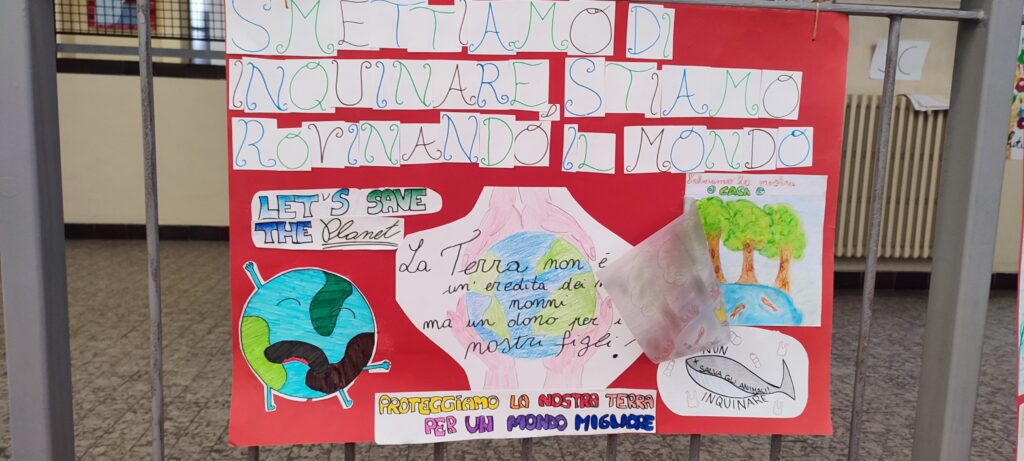 SMETTIAMO DI
INQUINARE, STIAMO
ROVINANDO IL MONDO
LET'S SAVE
THE Planet
La Terra non è
un'eredità dei
nonni
ma un dono per i
nostri figli!
Salviamo la nostra
CASA
NON
SALVA GLI ANIMALI!
INQUINARE
PROTEGGIAMO LA NOSTRA TERRA
PER UN MONDO MIGLIORE